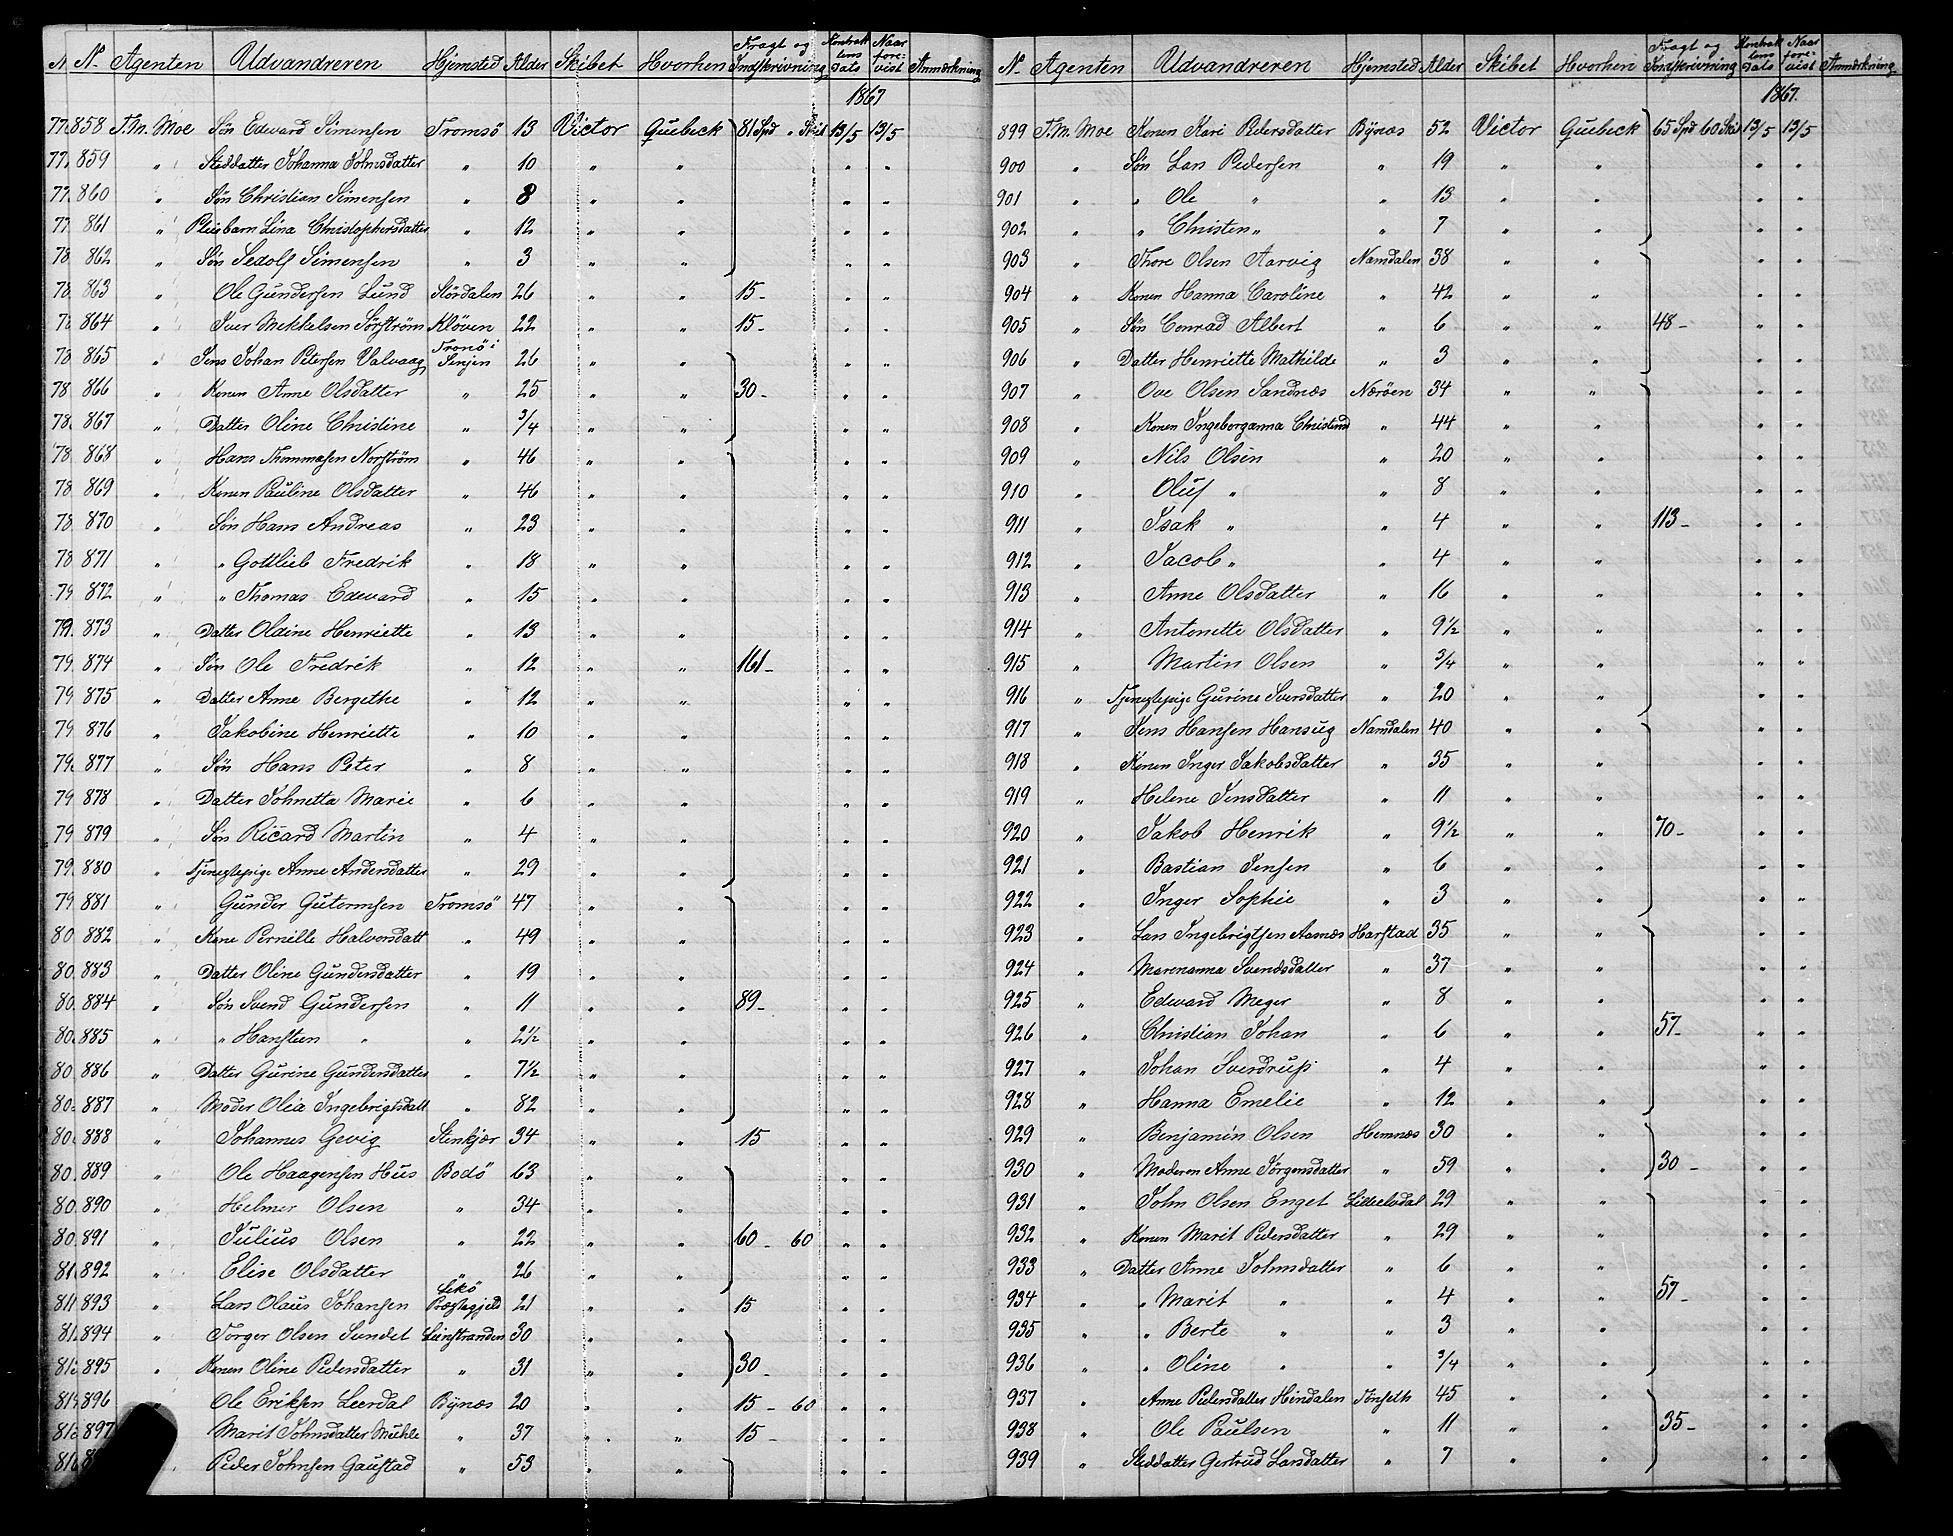 N. Agenten Udvandreren Hjemsted Alder Skibet Hvorhen Fragt og Indskrivning Kontraktens Dato Naar forevist Anmærkning
1867
858 T.M. Moe Søn Edvard Simensen Tromsö 13 Victor Quebeck 81 Spd " Skil 13/5 13/5
859 " Steddatter Johanna Johnsdatter " 10 " " " "
860 " Søn Christian Simensen " 8 " " " "
861 " Pleiebarn Lina Christophersdatter " 12 " " " "
862 " Søn Sedolf Simensen " 3 " " " "
863 " Ole Gundersen Lund Stördalen 26 " " 15 - " "
864 " Iver Mekkelsen Sørstrøm Kløven 22 " " 15 - " "
865 " Jens Johan Petersen Valvaag Tronö i Senjen 26 " " " "
866 " Konen Anne Olsdatter " 25 " " 30 - " "
867 " Datter Oline Christine " 3/4 " " " "
868 " Hans Thommasen Norstrøm " 46 " " " "
869 " Konen Pauline Olsdatter " 46 " " " "
870 " Søn Hans Andreas " 23 " " " "
871 " " Gottlieb Fredrik " 18 " " " "
872 " " Thomas Edevard " 15 " " " "
873 " Datter Oldine Henriette " 13 " " " "
874 " Søn Ole Fredrik " 12 " " 161 - " "
875 " Datter Anne Bergithe " 12 " " " "
876 " Jakobine Henriette " 10 " " " "
877 " Søn Hans Peter " 8 " " " "
878 " Datter Johnetta Marie " 6 " " " "
879 " Søn Ricard Martin " 4 " " " "
880 " Tjenestepige Anne Andersdatter " 29 " " " "
881 " Gunder Gutormsen Tromsö 47 " " " "
882 " Kone Pernille Halvorsdatt " 49 " " " "
883 " Datter Oline Gundersdatter " 19 " " " "
884 " Søn Svend Gundersen " 11 " " 89 - " "
885 " " Hansteen " " 2 1/2 " " " "
886 " Datter Gurine Gundersdatter " 7 1/2 " " " "
887 " Moder Olea Ingebrigtsdatt " 82 " " " "
888 " Johannes Gevig Stenkjær 34 " " 15 " "
889 " Ole Haagensen Hus Bodö 63 " " " "
890 " Helmer Olsen " 34 " " " "
891 " Julius Olsen " 22 " " 60 - 60 " "
892 " Elise Olsdatter " 26 " " " "
893 " Lars Olaus Johansen Lekö Præstegjeld 21 " " 15 " "
894 " Torger Olsen Sundet Leinstranden 30 " " " "
895 " Konen Oline Pedersdatter " 31 " " 30 - " "
896 " Ole Eriksen Leerdal Bÿnæs 20 " " 15 - 60 " "
897 Marit Johnsdatter Muhle " 37 " " 15 - " "
Peder Johnsen Gaustad " 53 " " " "
N. Agenten Udvandreren Hjemsted Alder Skibet Hvorhen Fragt og Indskrivning Kontraktens Dato Naar forevist Anmærkning
1867.
899 T.M. Moe Konen Kari Pedersdatter Bÿnæs 52 Victor Quebeck 65 Spd 60 Skil 13/5 13/5
900 " Søn Lars Pedersen " 19 " " " "
901 " " Ole " " 13 " " " "
902 " " Christen " " 7 " " " "
903 " Thore Olsen Aarvig Namdalen 38 " " " "
904 " Konen Hanna Caroline " 42 " " " "
905 " Søn Conrad Albert " 6 " " 48 - " "
906 " Datter Henriette Mathilde " 3 " " " "
907 " Ove Olsen Sandnæs Nærøen 34 " " " "
908 " Konen Ingeborganna Christund " 44 " " " "
909 " Nils Olsen " 20 " " " "
910 " Oluf " " 8 " " " "
911 " Isak " " 4 " " 113 - " "
912 " Jacob " " 4 " " " "
913 " Anne Olsdatter " 16 " " " "
914 " Antonette Olsdatter " 9 1/2 " " " "
915 " Martin Olsen " 3/4 " " " "
916 " Tjenestepige Gurine Iversdatter " 20 " " " "
917 " Jens Hansen Hansvig Namdalen 40 " " " "
918 " Konen Inger Jakobsdatter " 35 " " " "
919 " Helene Jensdatter " 11 " " " "
920 " Jakob Henrik " 9 1/2 " " 70 - " "
921 " Bastian Jensen " 6 " " " "
922 " Inger Sophie " 3 " " " "
923 " Lars Ingebrigtsen Aasnæs Harstad 35 " " " "
924 " Marenanna Svendsdatter " 37 " " " "
925 " Edevard Meger " 8 " " " "
926 " Christian Johan " 6 " " 57 - " "
927 " Johan Sverdrup " 4 " " " "
928 " Hanna Emelie " 12 " " " "
929 " Benjamin Olsen Hemnæs 30 " " " "
930 " Moderen Anne Jørgensdatter " 59 " " 30 - " "
931 " John Olsen Enget Lillelvdal 29 " " " "
932 " Konen Marit Pedersdatter " 29 " " " "
933 " Datter Anne Johnsdatter " 6 " " " "
934 " " Marit " " 4 " " 57 - " "
935 " " Berte " " 3 " " " "
936 " " Oline " " 3/4 " " " "
937 " Anne Pedersdatter Hindalen Tønseth 45 " " " "
938 " Ole Paulsen " 11 " " 35 - " "
939 " Steddatter Gertrud Larsdatter " 7 " " " "